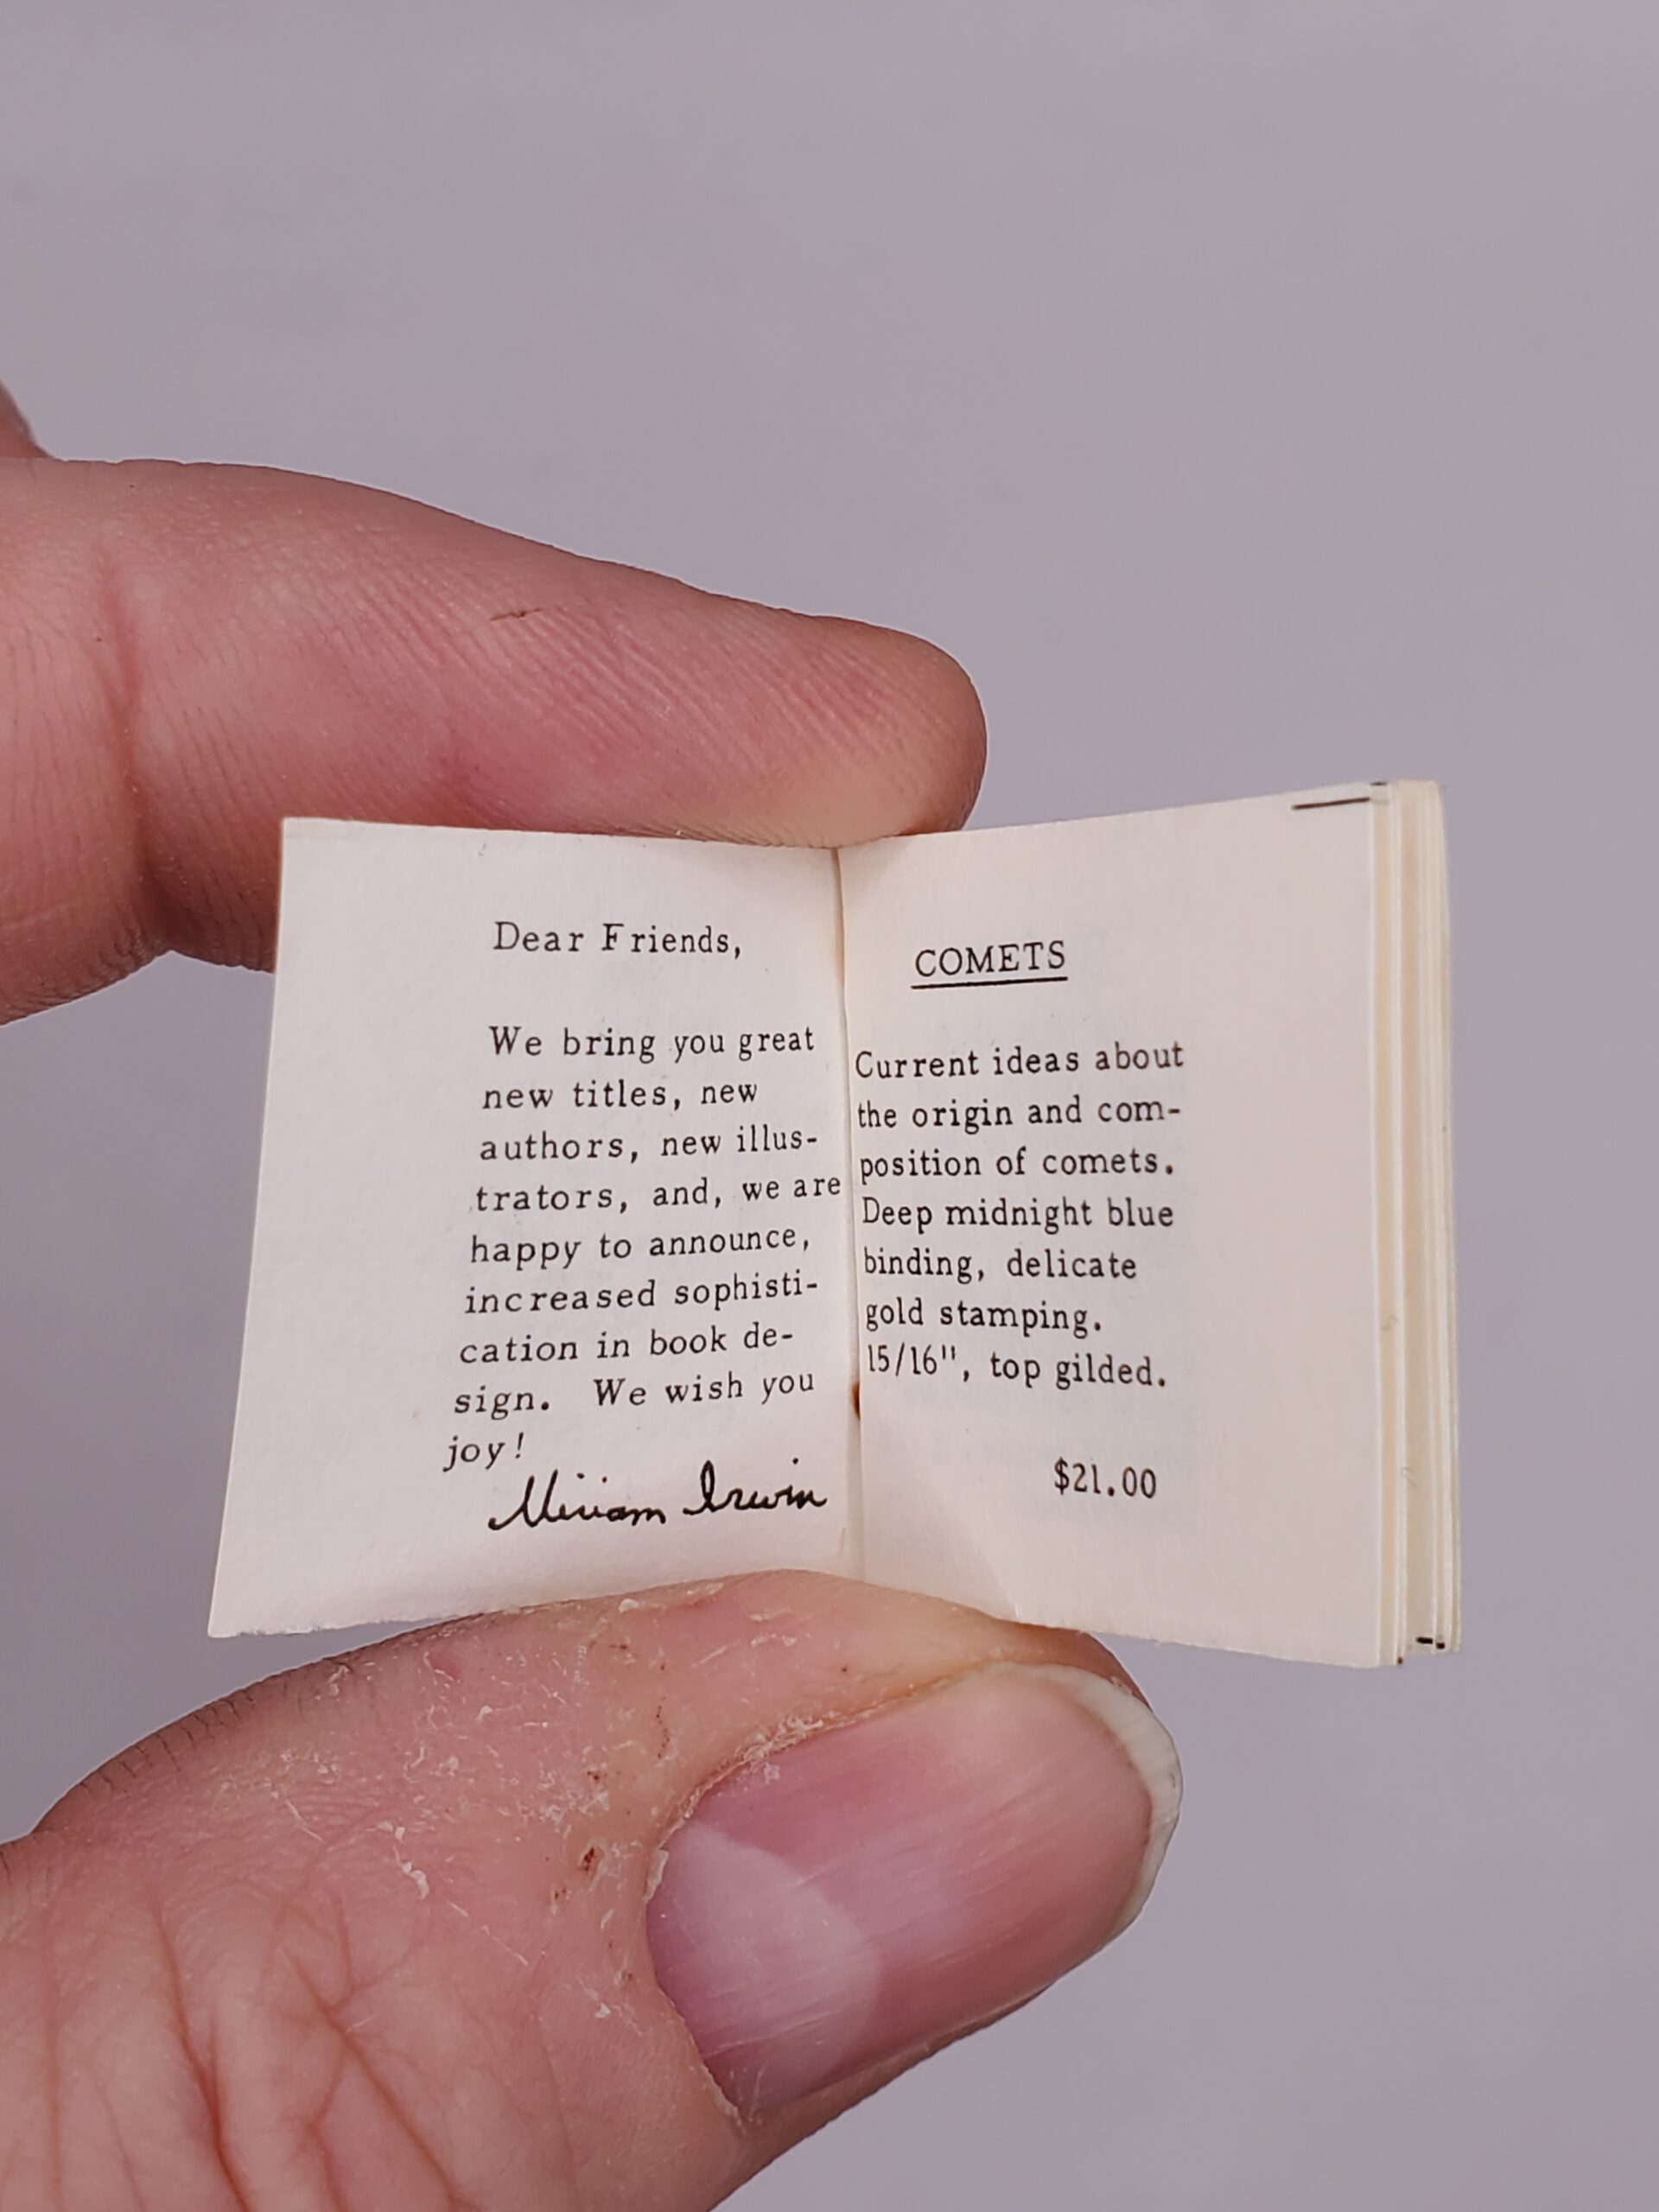 Dear Friends,
We bring you great
new titles, new
authors, new illus-
trators, and, we are
happy to announce,
increased sophisti-
cation in book de-
sign. We wish you
joy!
Miriam Irwin
COMETS
Current ideas about
the origin and com-
position of comets.
Deep midnight blue
binding, delicate
gold stamping.
15/16", top gilded.
$21.00